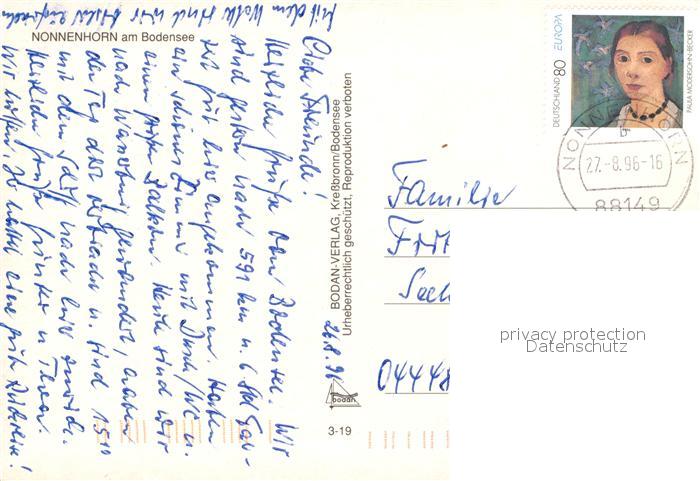 mit dem
NONNENHORN am Bodensee
Liebe Freunde!
Herzliche Grüße vom Bodensee. Wir
sind gestern nach 591 km u. 6 Std
gut hier angekommen. Haben
ein schönes Zimmer mit Dusch/WC u.
einen großen Balkon. Heute sind wir
nach Wasserburg gewandert, waren
den Tag über u. sind 15¹⁰
mit dem Schiff nach hier zurück.
Herzliche Grüße
Wir hoffen, Ihr hattet eine gute Rückreise!
26.8.96
BODAN-VERLAG, Kreßbronn/Bodensee
Urheberrechtlich geschützt, Reproduktion verboten
bodan
3-19
DEUTSCHLAND 80
EUROPA
PAULA MODERSOHN-BECKER
NONNENHORN
b
27.-8.96-16
88149
Familie
04448
privacy protection
Datenschutz